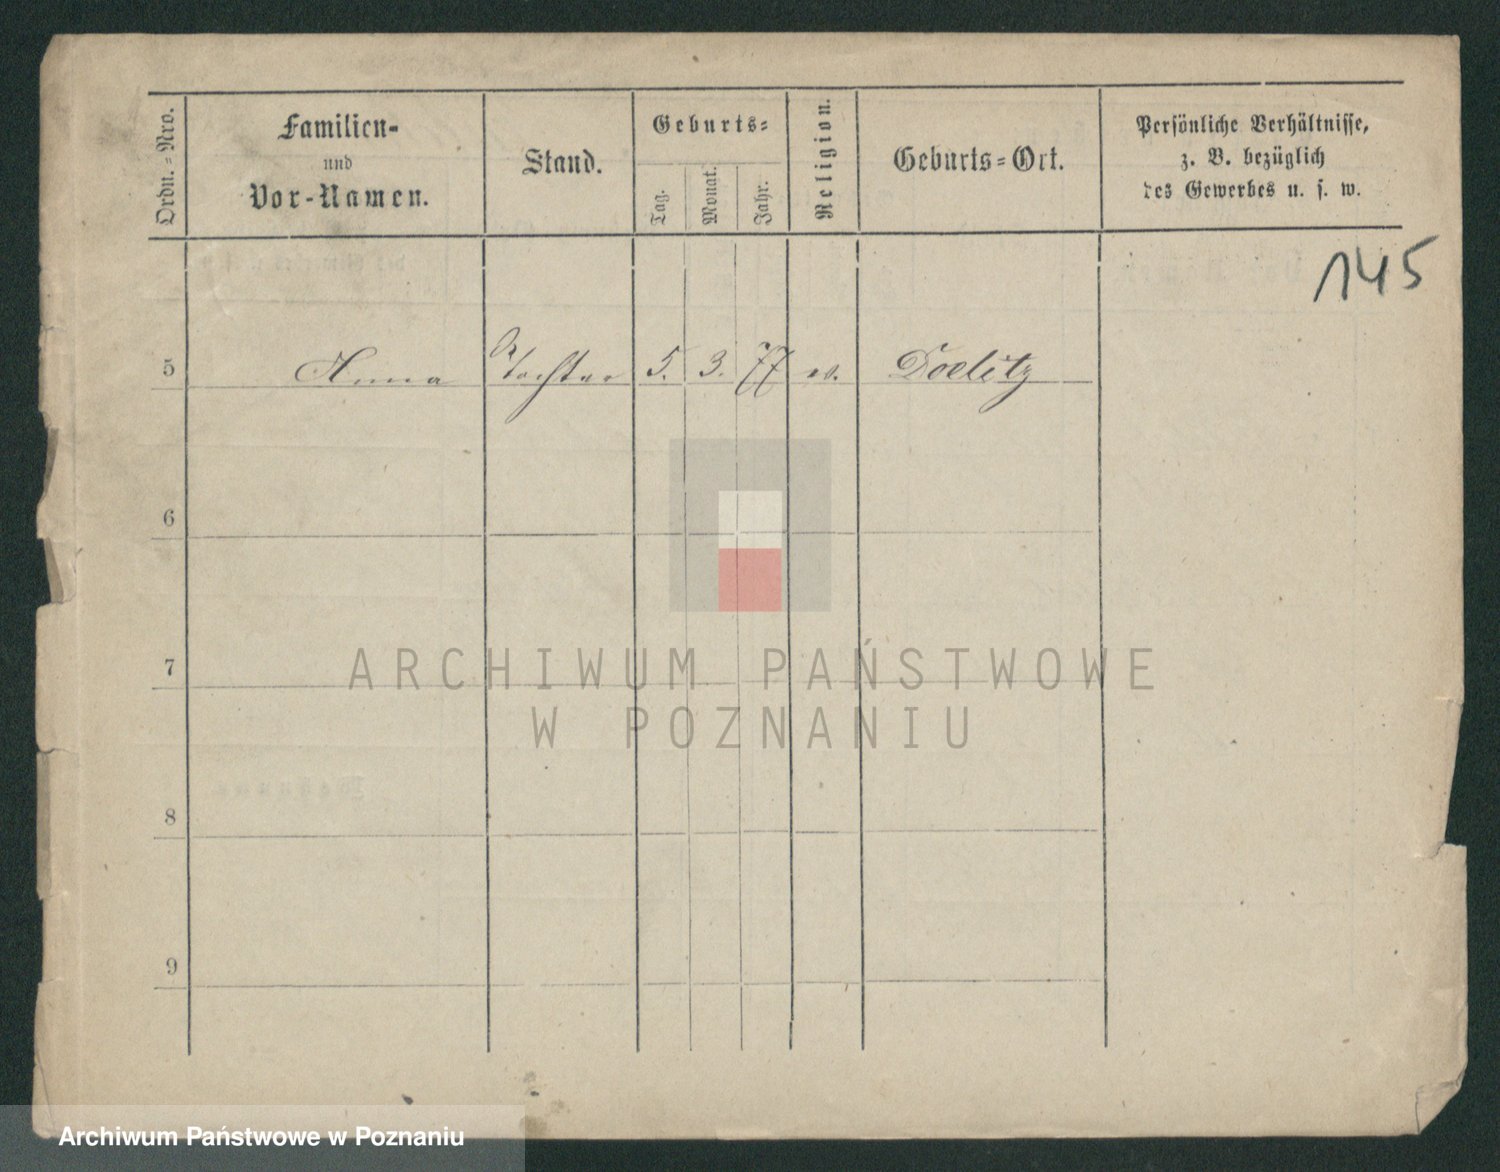 Ordn.-Nro.
Familien-
und
Vor-Namen.
Stand.
Geburts-
Tag.
Monat.
Jahr.
Religion.
Geburts-Ort.
Persönliche Verhältnisse,
z. B. bezüglich
des Gewerbes u. s. w.
145
5 Anna Tochter 5. 3. 77 ev. Doelitz
6
7
8
9
ARCHIWUM PAŃSTWOWE
W POZNANIU
Archiwum Państwowe w Poznaniu